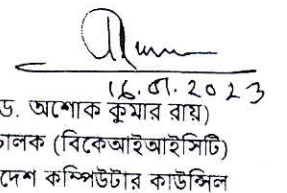 16.01.2023
ড. অশোক কুমার রায়)
চালক (বিকেআইআইসিটি)
দেশ কম্পিউটার কাউন্সিল